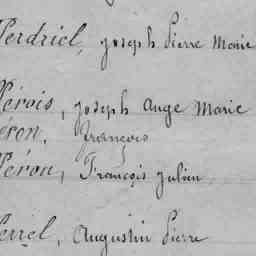 Perdriel, Joseph Pierre Marie
Pérois, Joseph Ange Marie
Péron, François
Péron, François Julien
Perrel, Augustin Pierre